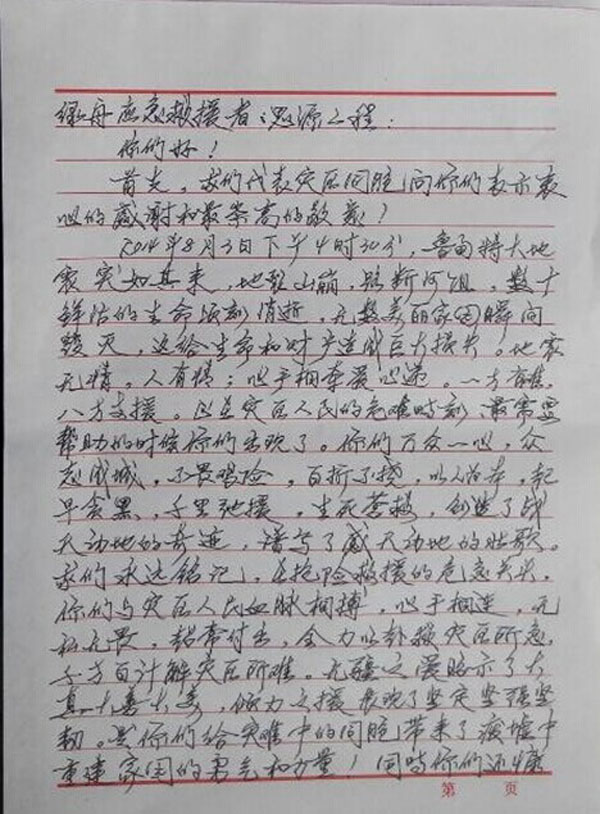 绿舟应急救援者：思源工程：
你们好！
首先，我们代表灾区同胞向你们表示衷
心的感谢和最崇高的敬意！
2014年8月3日下午4时30分，鲁甸特大地
震突如其来，地裂山崩，路断河阻，数十
鲜活的生命顷刻消逝，无数美丽家园瞬间
毁灭，这给生命和财产造成巨大损失。地震
无情。人有情；心手相牵爱心递。一方有难，
八方支援。你在灾区人民的危难时刻，最需要
帮助的时候你们出现了。你们万众一心，众
志成城，不畏艰险，百折不挠，以人为本，起
早贪黑，千里驰援，生死营救，创造了战
天动地的奇迹，谱写了感天动地的壮歌。
我们永远铭记，在抢险救援的危急关头，
你们与灾区人民血脉相搏，心手相连，无
私无畏，倾常付出，全力以赴救灾区所急，
千方百计解灾区所难。无疆之爱昭示了大
真大善大美，倾力之援展现了坚定坚强坚
韧。是你们给灾难中的同胞带来了废墟中
重建家园的勇气和力量！同时你们还慷
第 页